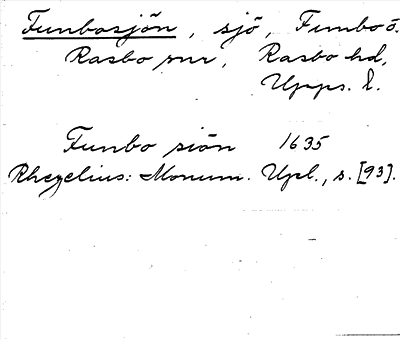 Funbosjön, sjö, Funbo ö.
Rasbo snr, Rasbo hd,
Upps. l.
Funbo siön 1635
Rhezelius: Monum. Upl., s. [93].